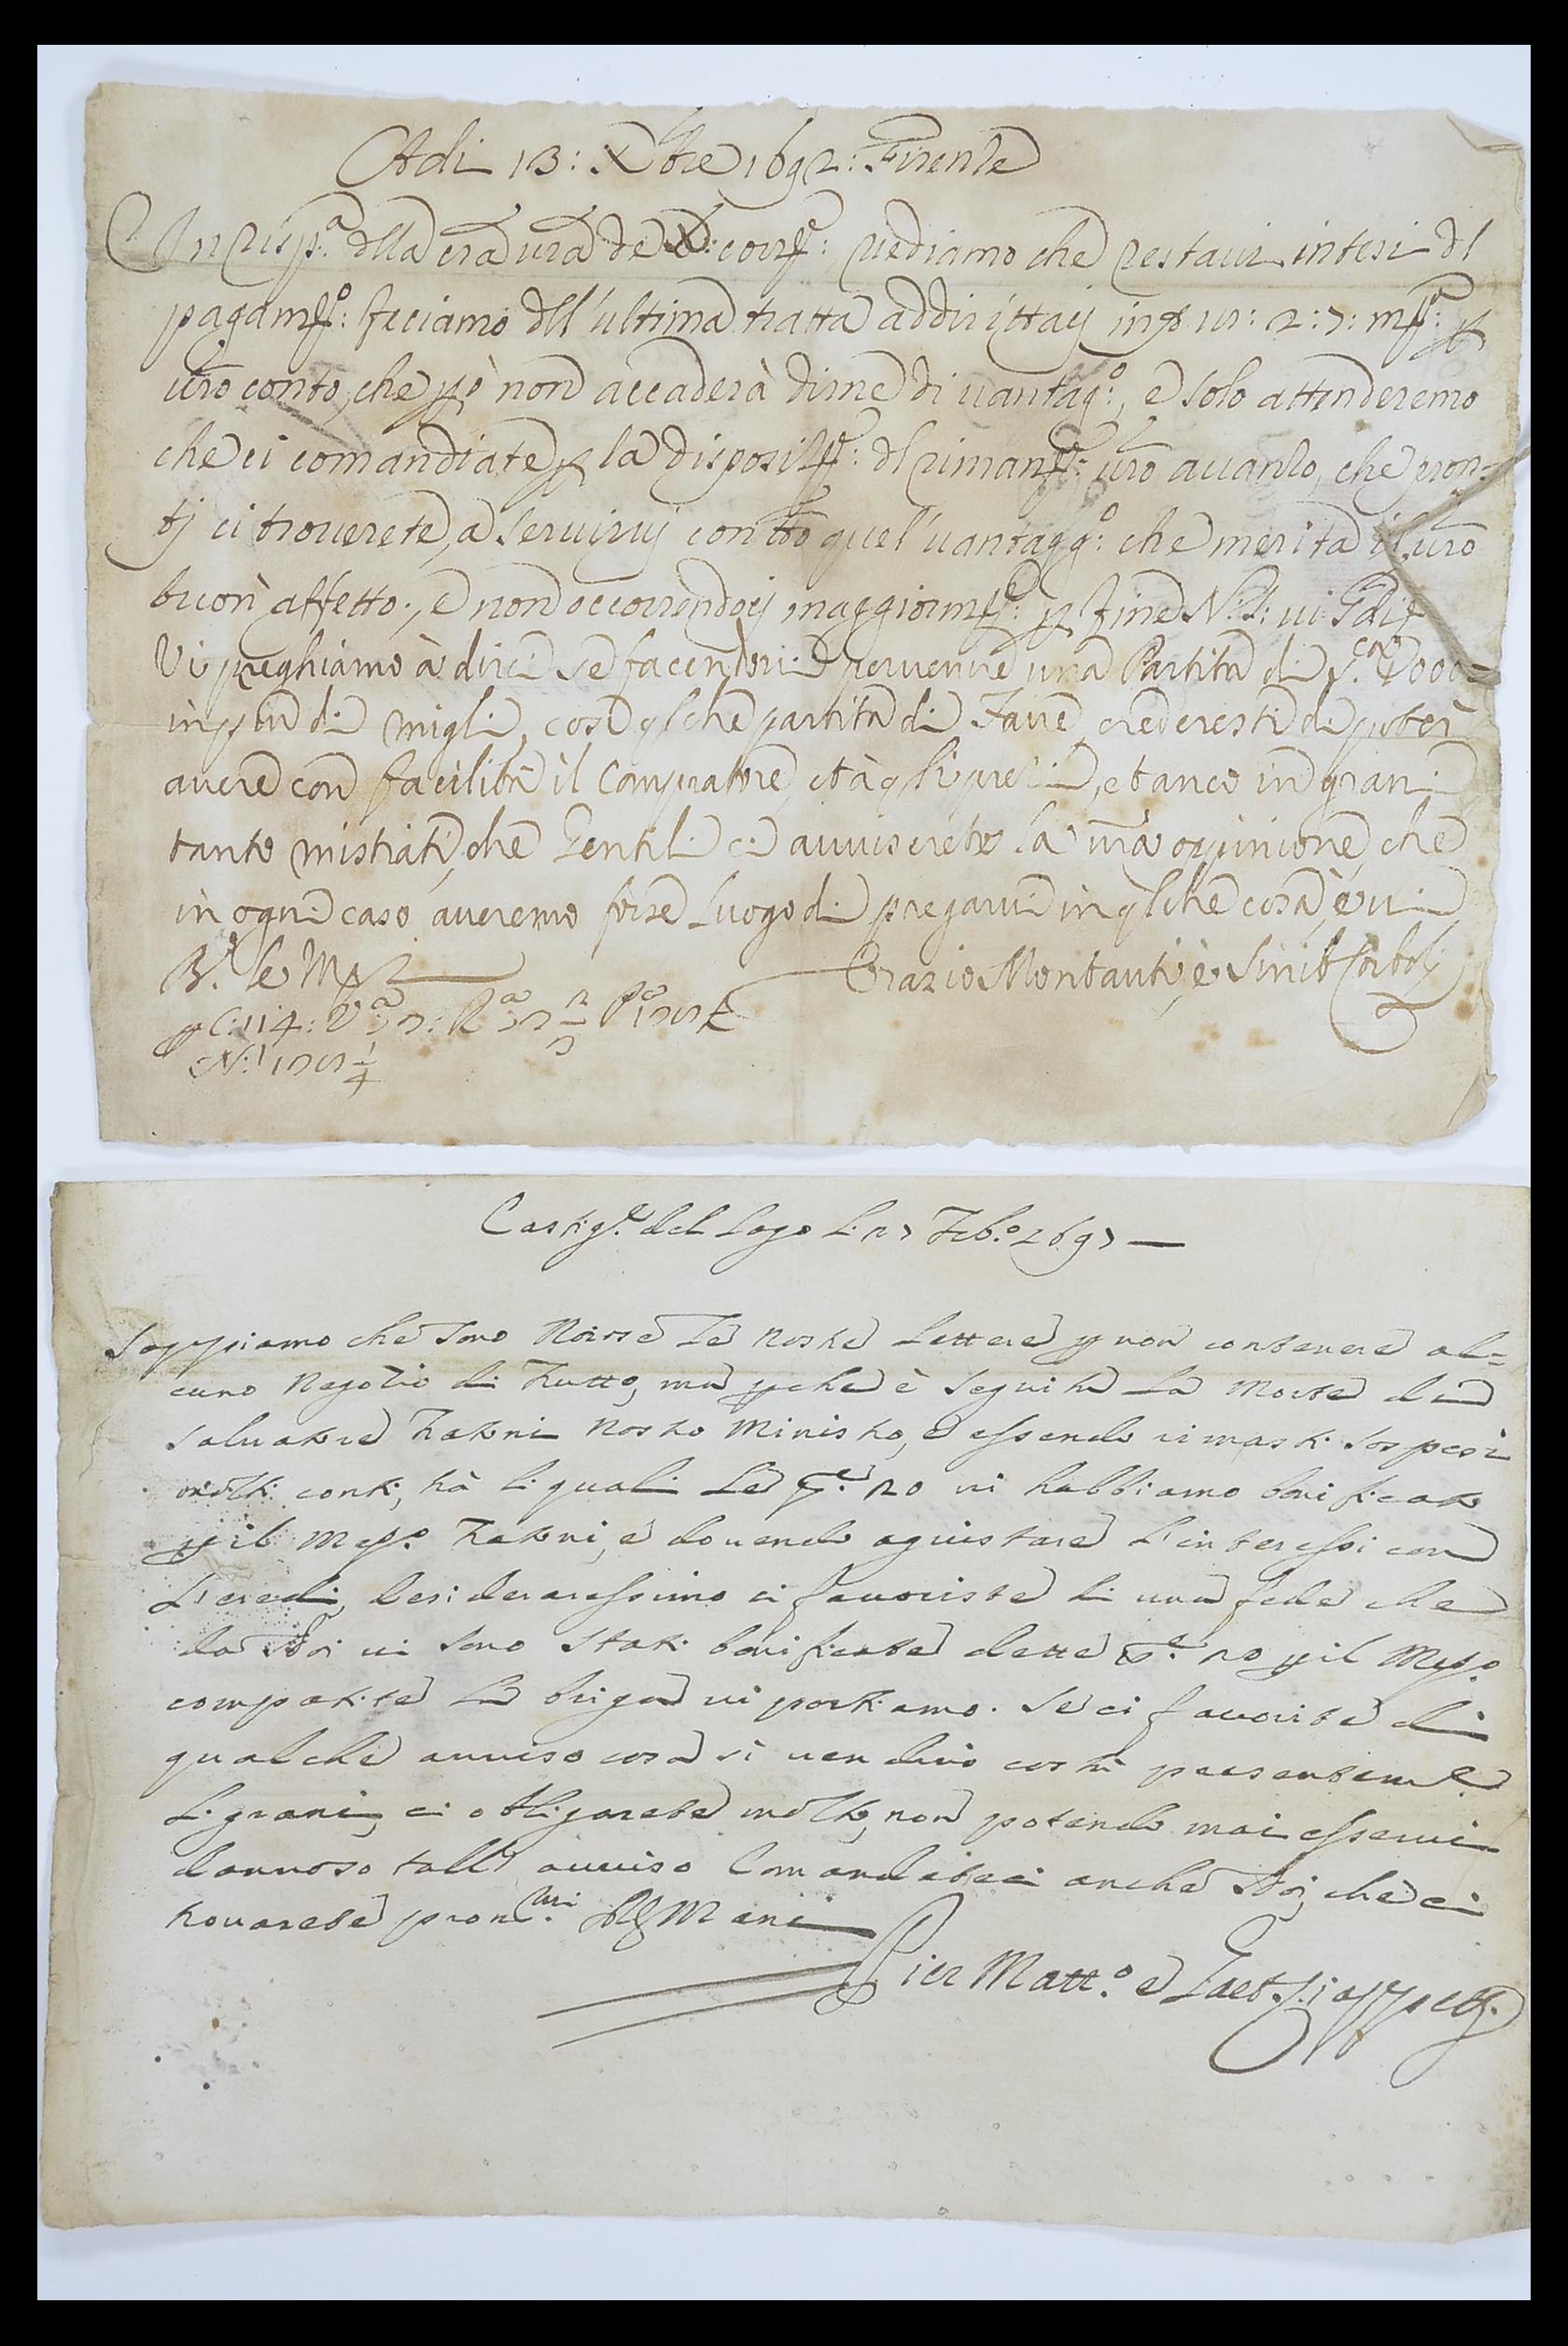 Adi 13: Xbre 1692: Firenze
In risp.a dlla cra vra de corr.te: vediamo che restavi intesi dl
pagam.to: faciamo dll'ultima tratta addirittaci in
vro conto, che però non accaderà dirne di vantag.o, e solo attenderemo
che ci comandiate la disposiz.e: dl riman.te: vro avanzo, che pron-
tj ci troverete, a servirvj con tto quel' vantagg.o: che merita il vro
buon affetto, e non occorrendocj maggiorm.te: fine N. S: vi Gdi
Vi preghiamo à dirci se facendovi pervenire una Partita di
di migli, cosi qlche partita di Fave crederesti di poter
avere con facilità il Compratore, et à qli prezzi, et anco in grani
tanto mistiati, che Gentili ci avviserete la vra oppinione, che
in ogni caso averemo forse luogo di pregarvi in qlche cosa, e vi
B. le M
Orazio Montauti, e Sinib Corbolj
C: 114:
Castig.e del Lago Li 27 Feb.o 1697
Sappiamo che sono Noiose Le nostre Lettere p non contenere al=
cuno Negotio di Frutto, ma pche è seguita La Morte di
Salvatore nostro Ministro, e essendo rimasti sospesi
molti conti, trà li quali Le 20 vi habbiamo bonificate
p il Med.o e dovendo agiustare L'interessi con
L'eredi, desideraressimo ci favoriste di una fede che
da Noi vi sono stati bonificate dette 20 p il Med.o
compatite La briga vi portiamo. Se ci favorite di
qualche avviso cosa si vendino costà presentem.e
Li grani, ci obligarete molto, non potendo mai esservi
dannoso tall' avviso Comandateci anche Voi, che ci
trovarete pron.mi M ani
Pier Matt.o e